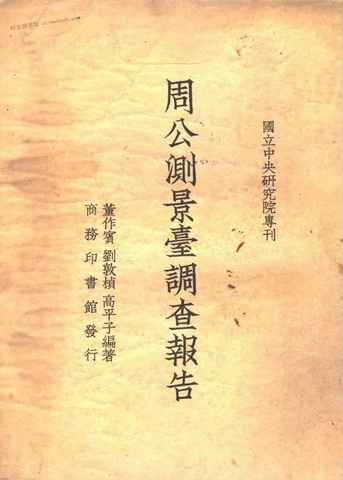 國立中央研究院專刊
周公測景臺調查報告
董作賓 劉敦楨 高平子編著
商務印書館發行